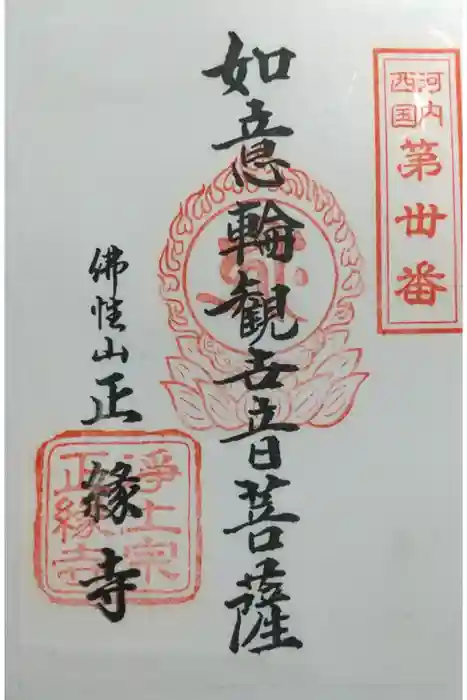 河内
西国
第丗番
如意輪観世音菩薩
佛性山正縁寺
淨土宗
正縁寺